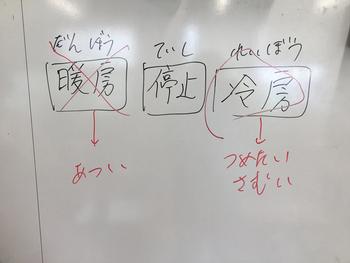 だんぼう ていし れいぼう
暖房 停止 冷房
あつい つめたい
さむい